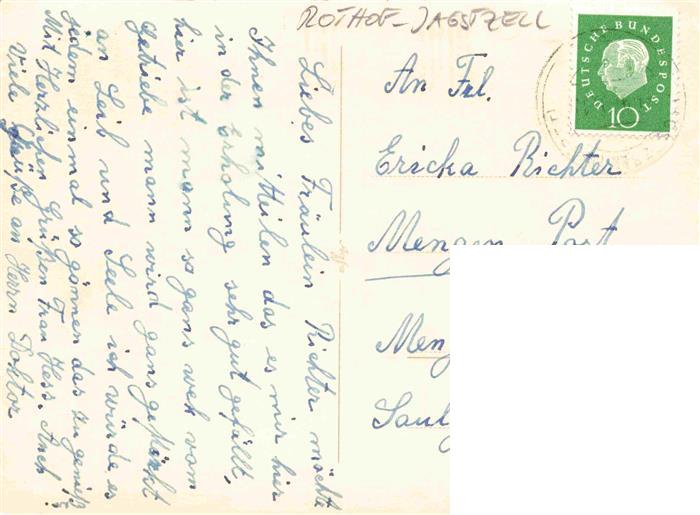 ROTHOF-JAGSTZELL
DEUTSCHE BUNDESPOST
10
Liebes Fräulein Richter möchte
Ihnen mitteilen das es mir hier
in der erholung sehr gut gefällt,
hier ist mann so ganz weh vom
Getriebe mann wird ganz gestärkt
an Leib und Seele ich würde es
jedem einmal so gönnen das zu genieß
Mit Herzlichen Grüßen Frau Hess. Auch
Viele Grüße an Herrn Doktor
An Frl.
Ericka Richter
Mengen Post
Meng
Saul